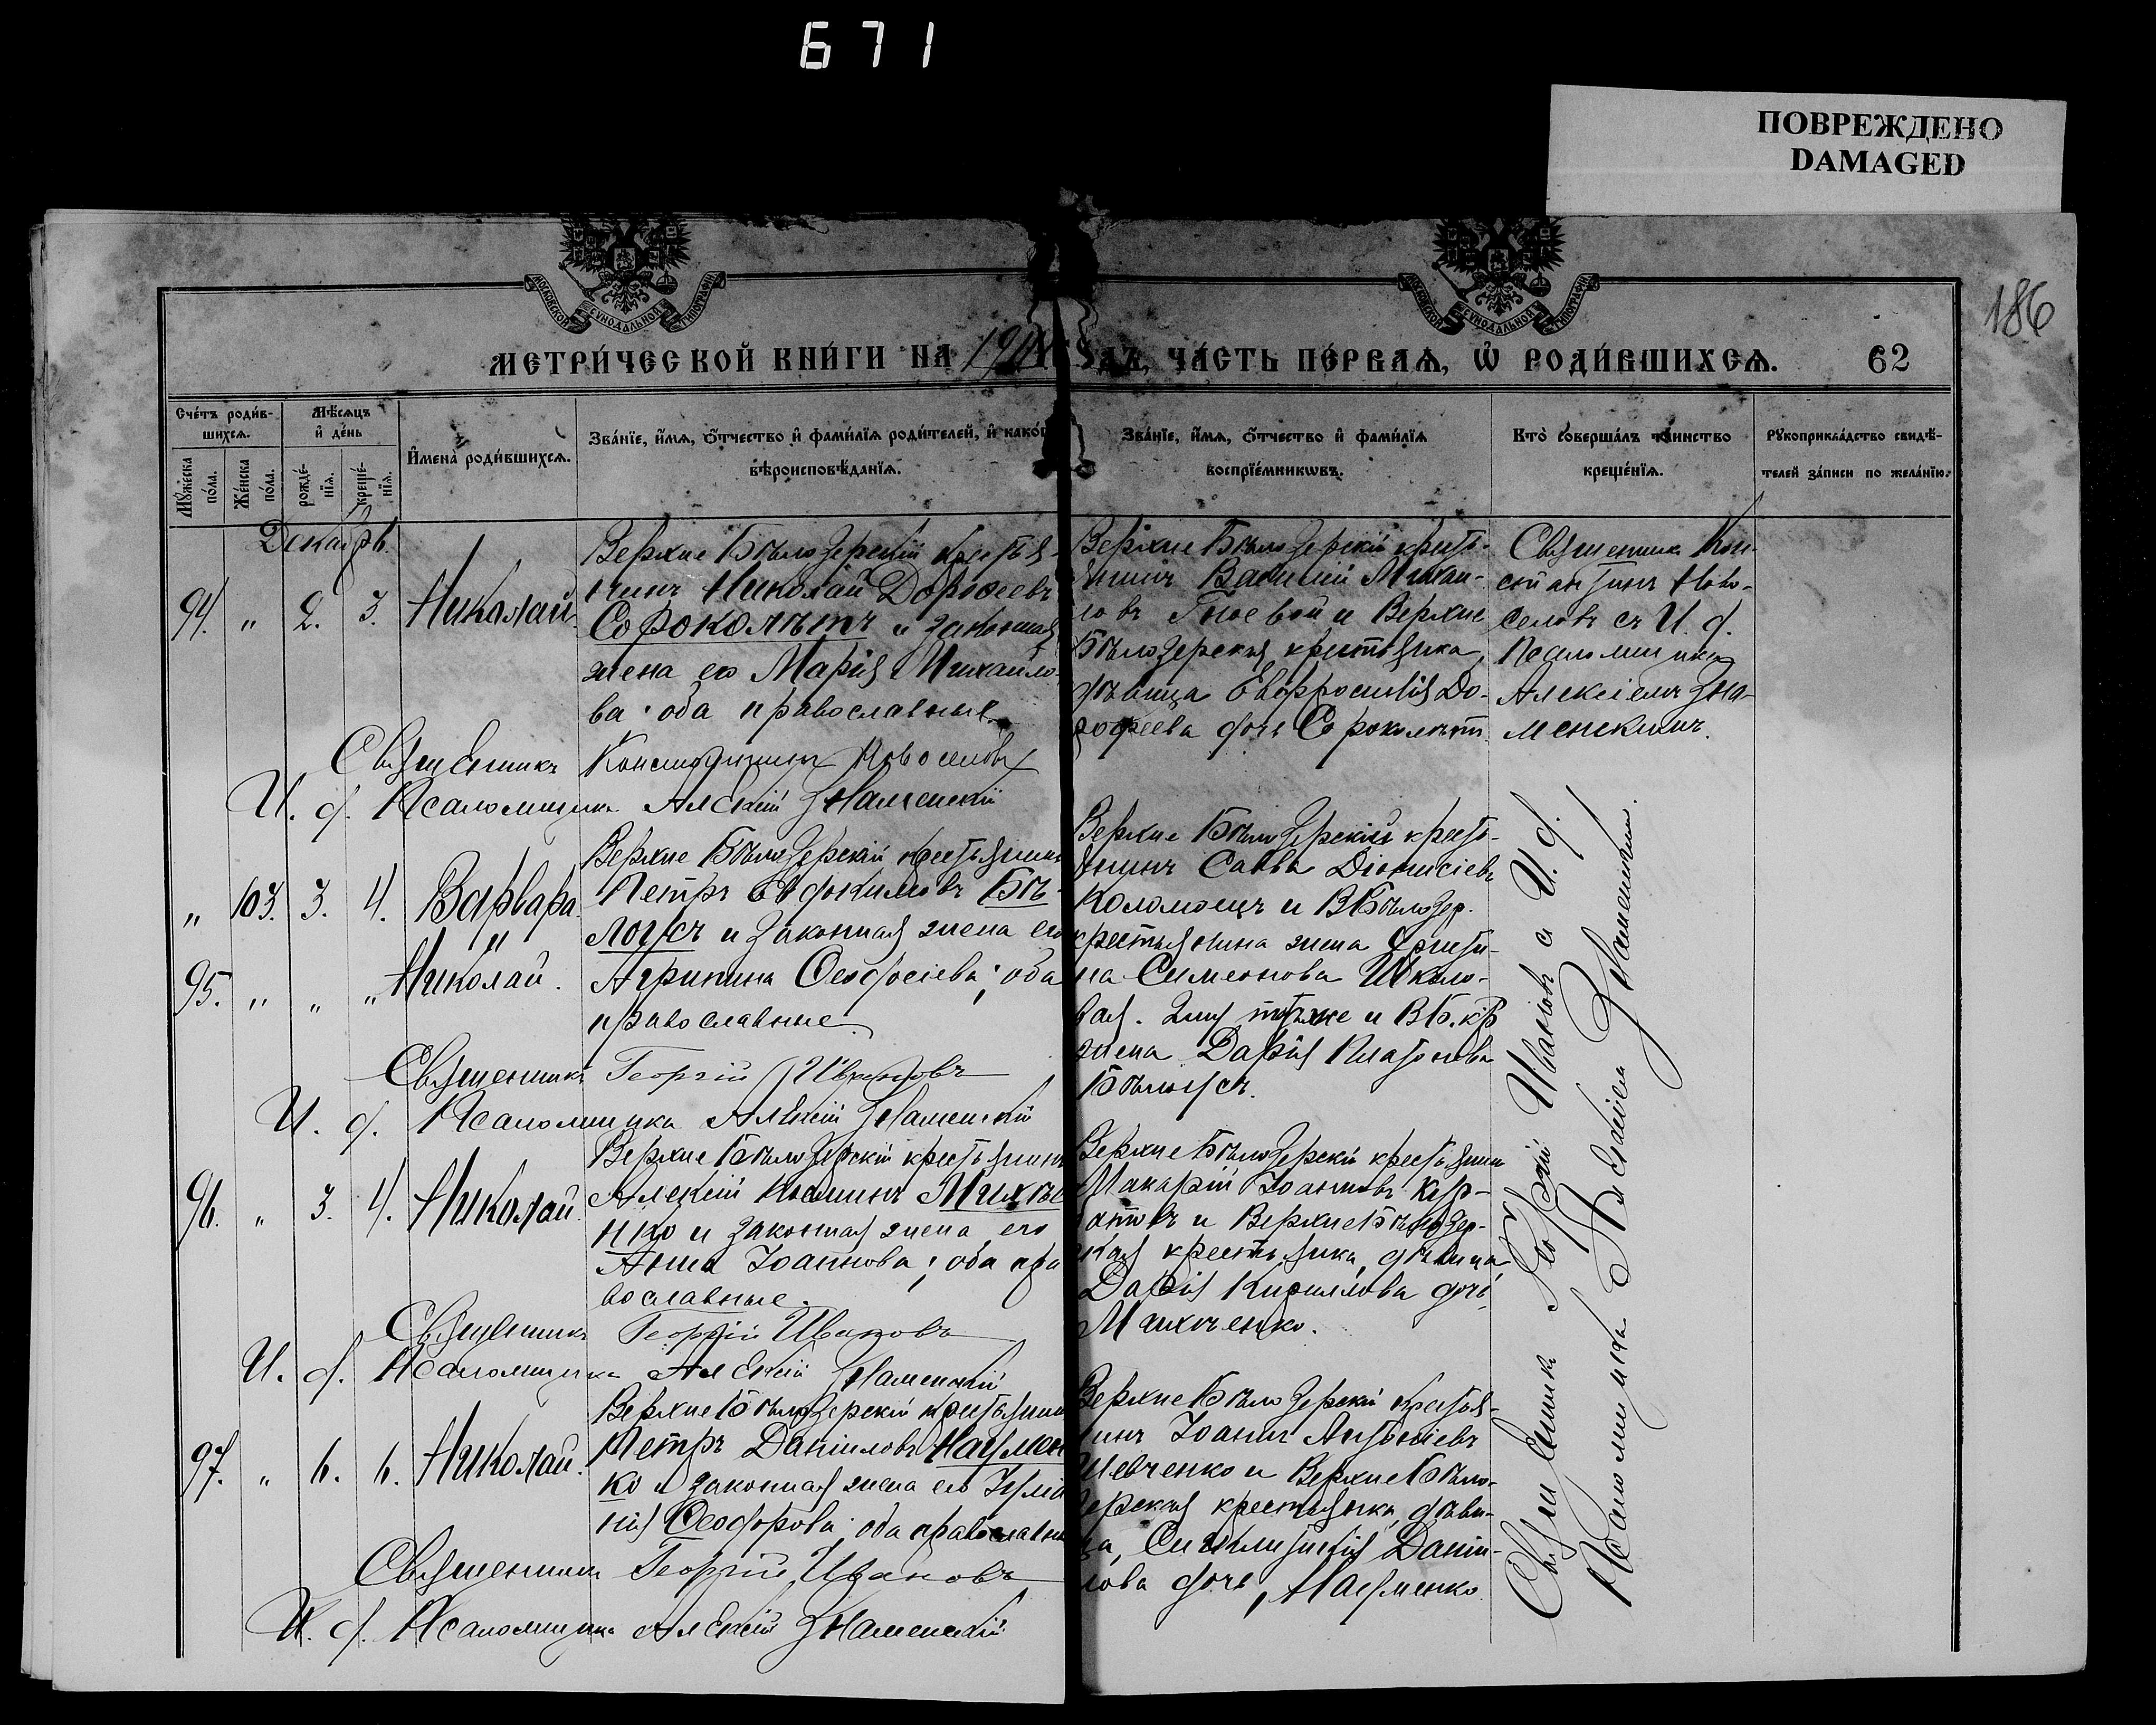 671
ПОВРЕЖДЕНО
DAMAGED
МОСКОВСКОЙ СУНОДАЛЬНОЙ ТИПОГРАФІИ
МОСКОВСКОЙ СУНОДАЛЬНОЙ ТИПОГРАФІИ
186
МЕТРИ́ЧЕСКОЙ КНИ́ГИ НА ЧА́СТЬ ПЕ́РВАѦ, Ѡ҆ РОДИ́ВШИХСѦ. 62
Сче́тъ роди́в-
шихсѧ.
Мꙋ́жеска по́ла.
Же́нска по́ла.
Мѣ́сѧцъ
и҆ де́нь
рожде́-
нїѧ.
креще́-
нїѧ.
И҆мена̀ роди́вшихсѧ.
Зва́нїе, и҆́мѧ, ѻ҆́тчество и҆ фами́лїѧ роди́телей, и҆ како́г
вѣроисповѣ́данїѧ.
Зва́нїе, и҆́мѧ, ѻ҆́тчество и҆ фами́лїѧ
воспрїе́мникѡвъ.
Кто̀ соверша́лъ та́инство
креще́нїѧ.
Рꙋкоприкла́дство свидѣ́-
телей за́писи по жела́нїю.
Декабрь.
94. " 2. 3. Николай.
Верхне Бѣлозерскій крестья-
нинъ Николай Дорофеевъ
Сороколѣтъ и законная
жена его Марія Михайло-
ва; оба православные.
Верхне Бѣлозерскій кресть-
янинъ Василій Михаи-
ловъ Гноевой и Верхне
Бѣлозерская крестьянка,
дѣвица Евфросинія До-
рофеева дочь Сороколѣтъ.
Священникъ Кон-
стантинъ Ново-
селовъ съ И. д.
Псаломщика
Алексіемъ Зна-
менскимъ.
Священникъ Константинъ Новоселовъ
И. д. Псаломщика Алексій Знаменскій
" 103. 3. 4. Варвара.
95. " " " Николай.
Верхне Бѣлозерскій крестьянинъ
Петръ Евдокимовъ Бѣ-
логусъ и законная жена его
Агрипина Ѳеодосіева; оба
православные.
Верхне Бѣлозерскій кресть-
янинъ Савва Діонисіевъ
Коломоецъ и В Бѣлозер.
крестьянина жена Христи-
на Симеонова Шкыло-
вая. тѣже и В Б. кр
жена Дарія Платонова
Бѣлогусъ.
Священникъ Георгій Ивановъ
И. д. Псаломщика Алексій Знаменскій
96. " 3. 4. Николай.
Верхне Бѣлозерскій крестьянинъ
Алексій Косминъ Михѣе
нко и законная жена его
Анна Іоаннова; оба пра
вославные.
Верхне Бѣлозерскій крестьянин
Макарій Іоанновъ Кур-
атовъ и Верхне Бѣлозер-
ская крестьянка, дѣвица
Дарія Кириллова дочь,
Михѣенко.
Священникъ Георгій Ивановъ
И. д. Псаломщика Алексій Знаменскій
97. " 6. 6. Николай.
Верхне Бѣлозерскій крестьянин
Петръ Даніиловъ Наумен
ко и законная жена его Іулiа
нія Ѳеодорова; оба православны
Верхне Бѣлозерскій крестья-
нинъ Іоаннъ Антоніевъ
Шевченко и Верхне Бѣло-
зерская крестьянка, дѣви-
ца, Синклитикія Даніи-
лова дочь, Науменко.
Священникъ Георгій Ивановъ
И. д. Псаломщика Алексій Знаменскій
Священникъ Георгій Ивановъ съ И. д.
Псаломщика Алексіемъ Знаменскимъ.